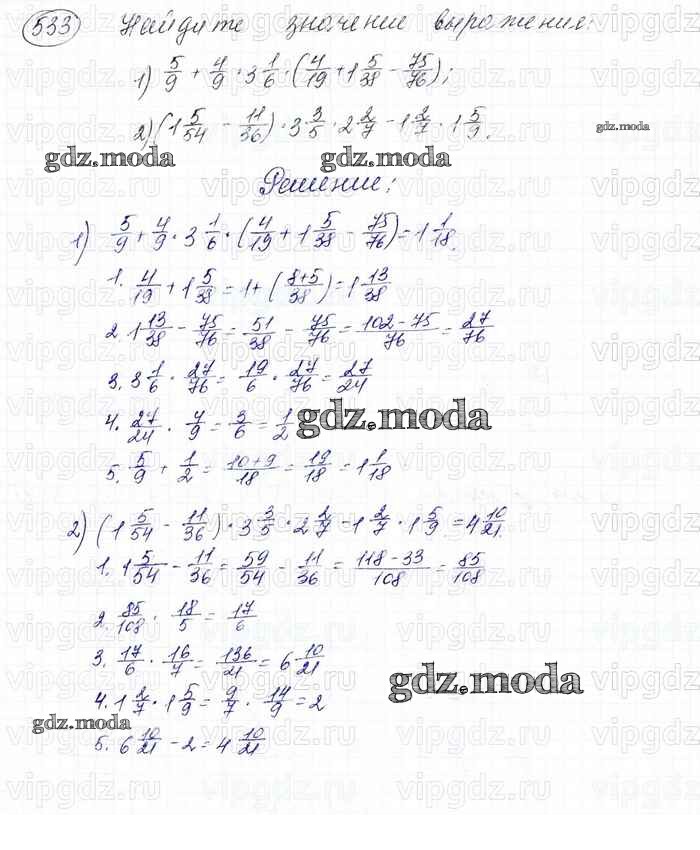 533 Найдите значение выражения:
1) 5/9 + 4/9 · 3 1/6 · (4/19 + 1 5/38 − 75/76);
2) (1 5/54 − 11/36) · 3 3/5 · 2 2/7 − 1 2/7 · 1 5/9.
gdz.moda
gdz.moda gdz.moda
Решение:
1) 5/9 + 4/9 · 3 1/6 · (4/19 + 1 5/38 − 75/76) = 1 1/18.
1. 4/19 + 1 5/38 = 1 + (8+5/38) = 1 13/38
2. 1 13/38 − 75/76 = 51/38 − 75/76 = 102−75/76 = 27/76
3. 3 1/6 · 27/76 = 19/6 · 27/76 = 27/24
4. 27/24 · 4/9 = 3/6 = 1/2 gdz.moda
5. 5/9 + 1/2 = 10+9/18 = 19/18 = 1 1/18
2) (1 5/54 − 11/36) · 3 3/5 · 2 2/7 − 1 2/7 · 1 5/9 = 4 10/21.
1. 1 5/54 − 11/36 = 59/54 − 11/36 = 118−33/108 = 85/108
2. 85/108 · 18/5 = 17/6
3. 17/6 · 16/7 = 136/21 = 6 10/21
gdz.moda
4. 1 2/7 · 1 5/9 = 9/7 · 14/9 = 2
gdz.moda
5. 6 10/21 − 2 = 4 10/21
vipgdz.ru